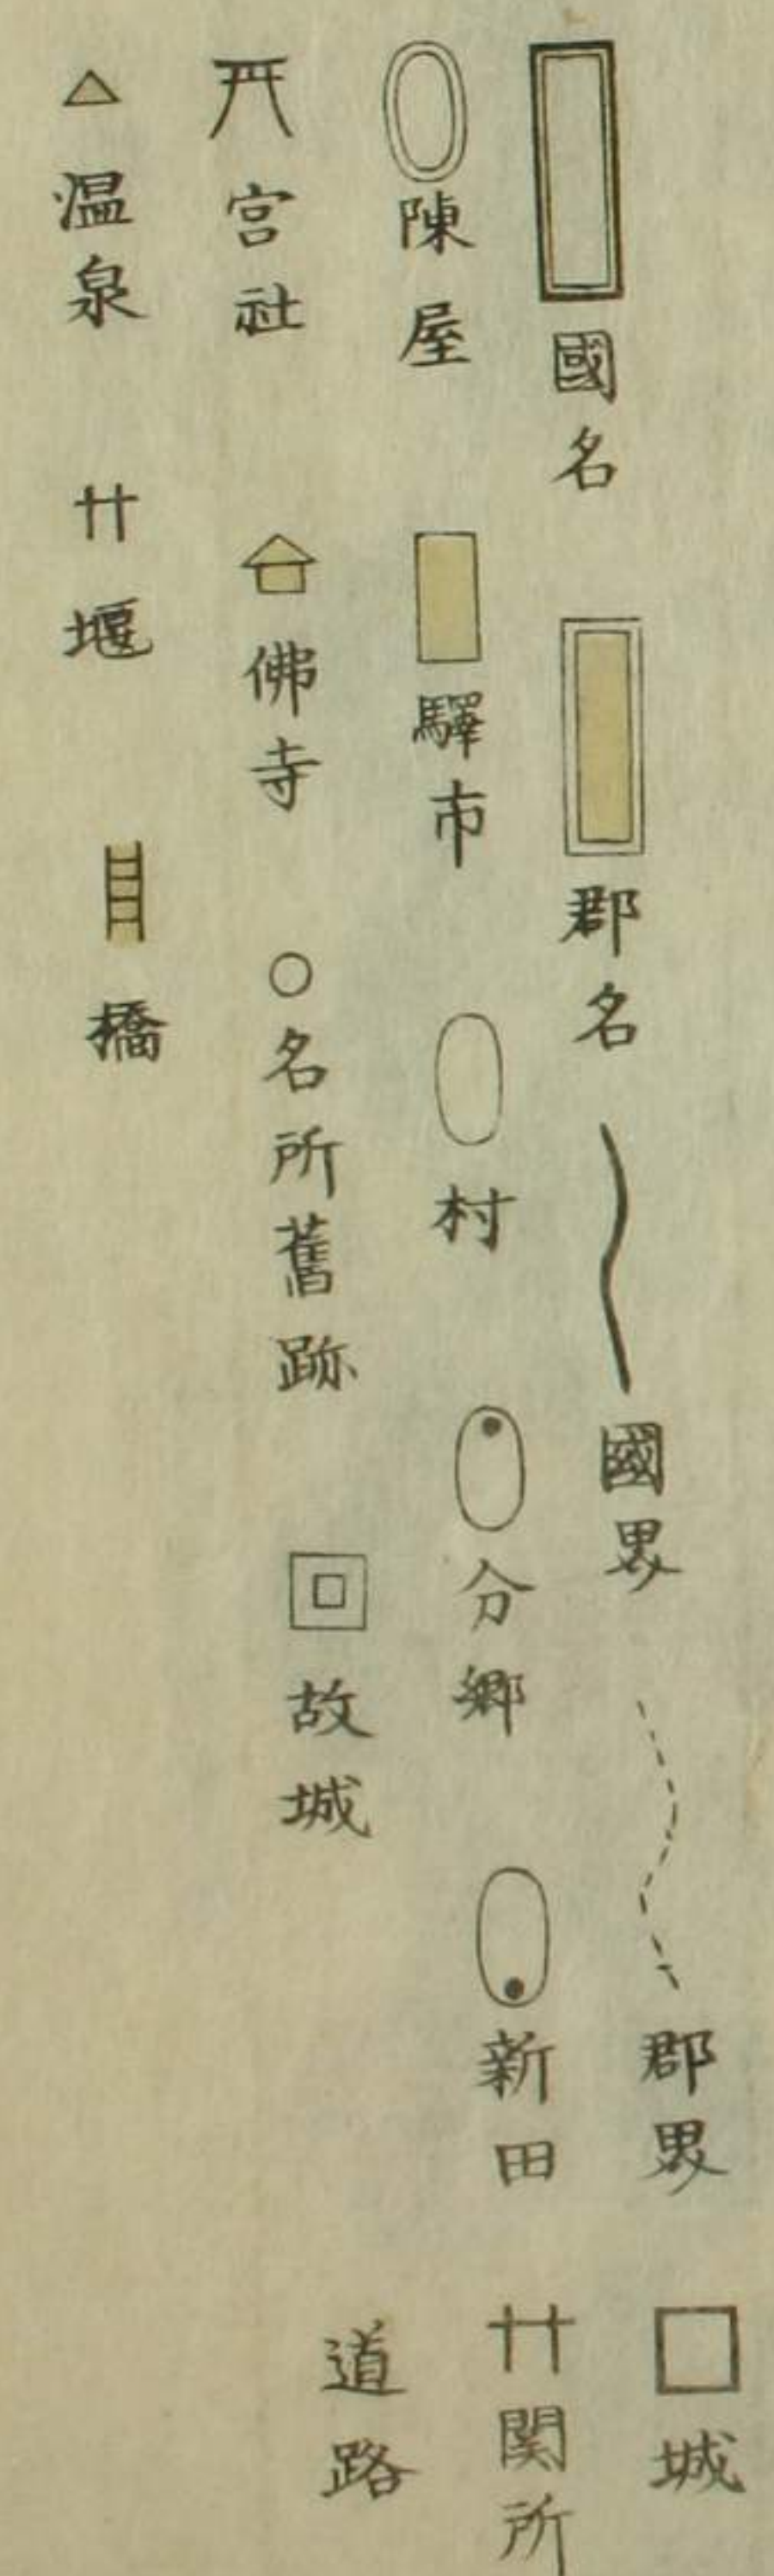 國名　郡名　國界　郡界　城
陳屋　驛市　村　分郷　新田　関所
宮社　佛寺　名所舊跡　故城　道路
温泉　堰　橋